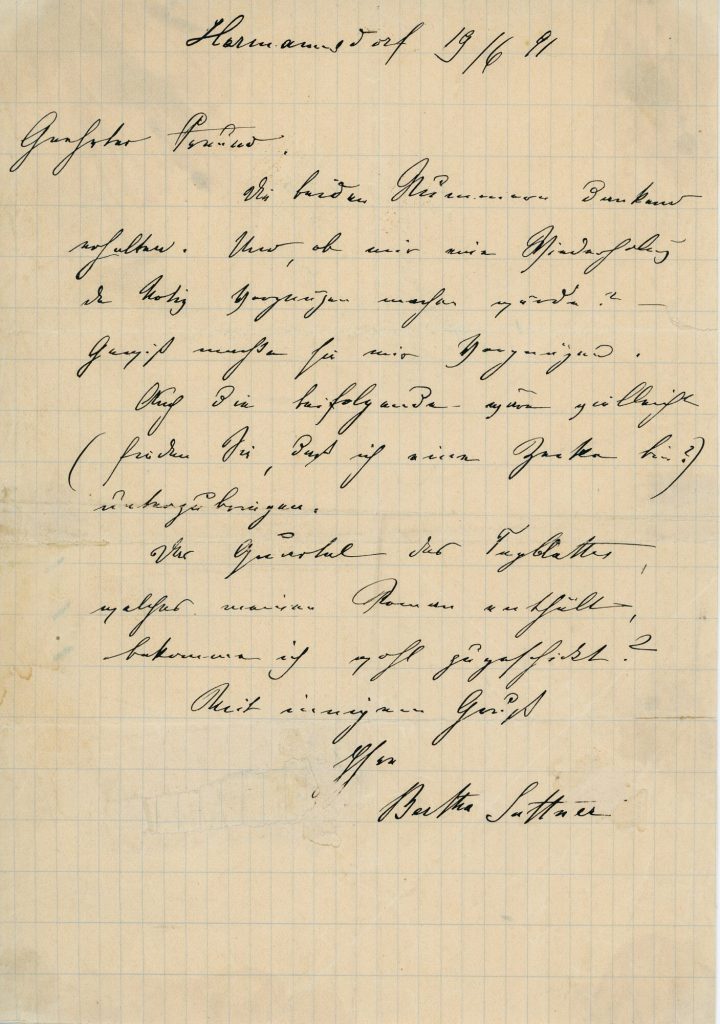 Harmannsdorf 19/6 91
Geehrter Freund.
Die beiden Nummern dankend
erhalten. Und, ob mir eine Wiederholung
der Notiz Vergnügen machen würde? –
Gewiß machte sie mir Vergnügen.
Auch die beifolgende – wäre vielleicht
(finden Sie, daß ich eine  bin?)
unterzubringen.
Das Quartal des Tagblattes,
welches meinen Roman enthält,
bekomme ich wohl zugeschickt?
Mit innigem Gruß
Ihre
Bertha Suttner